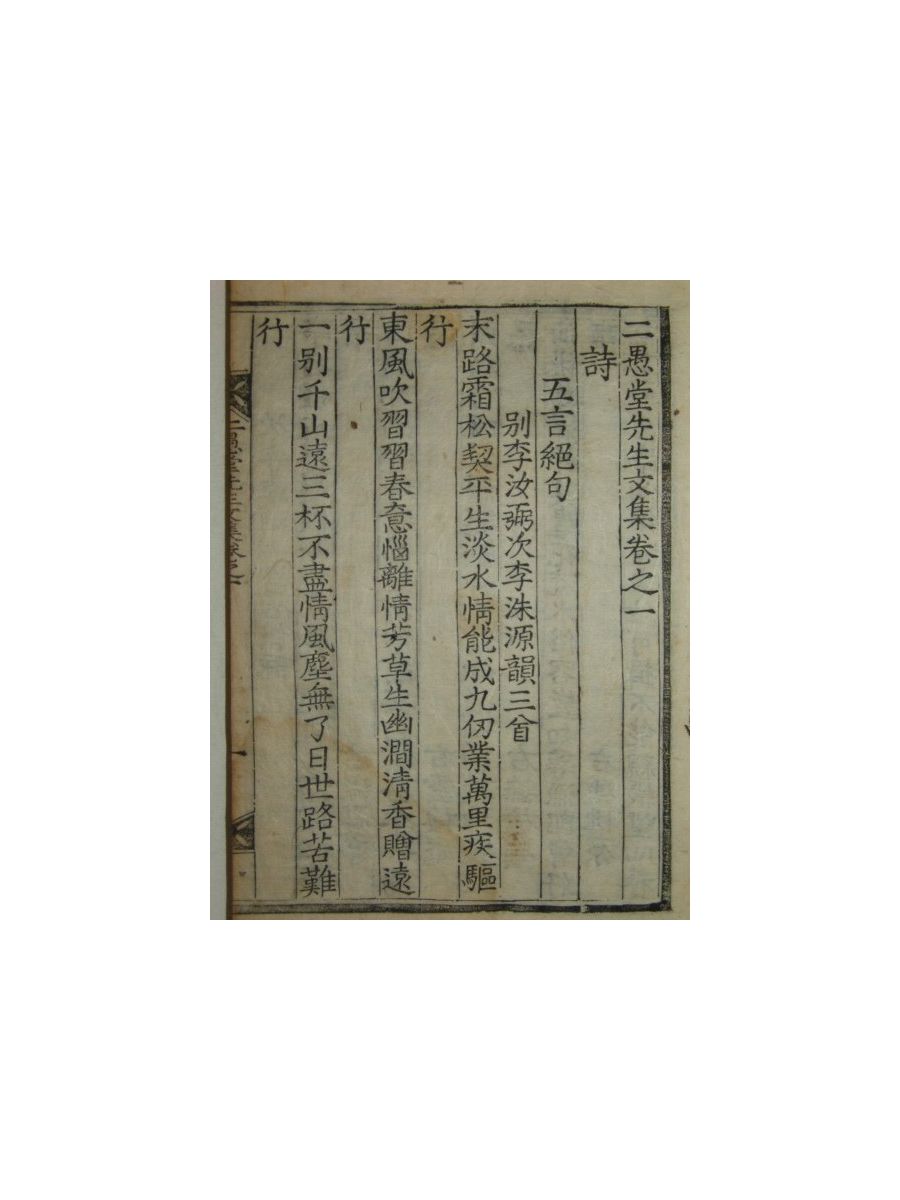 二愚堂先生文集卷之一
詩
五言絕句
別李汝弼次李洙源韻三首
末路霜松契平生淡水情能成九仞業萬里疾驅
行
東風吹習習春意惱離情芳草生幽澗清香贈遠
行
一別千山遠三杯不盡情風塵無了日世路苦難
行
二愚堂先生文集卷之一
一